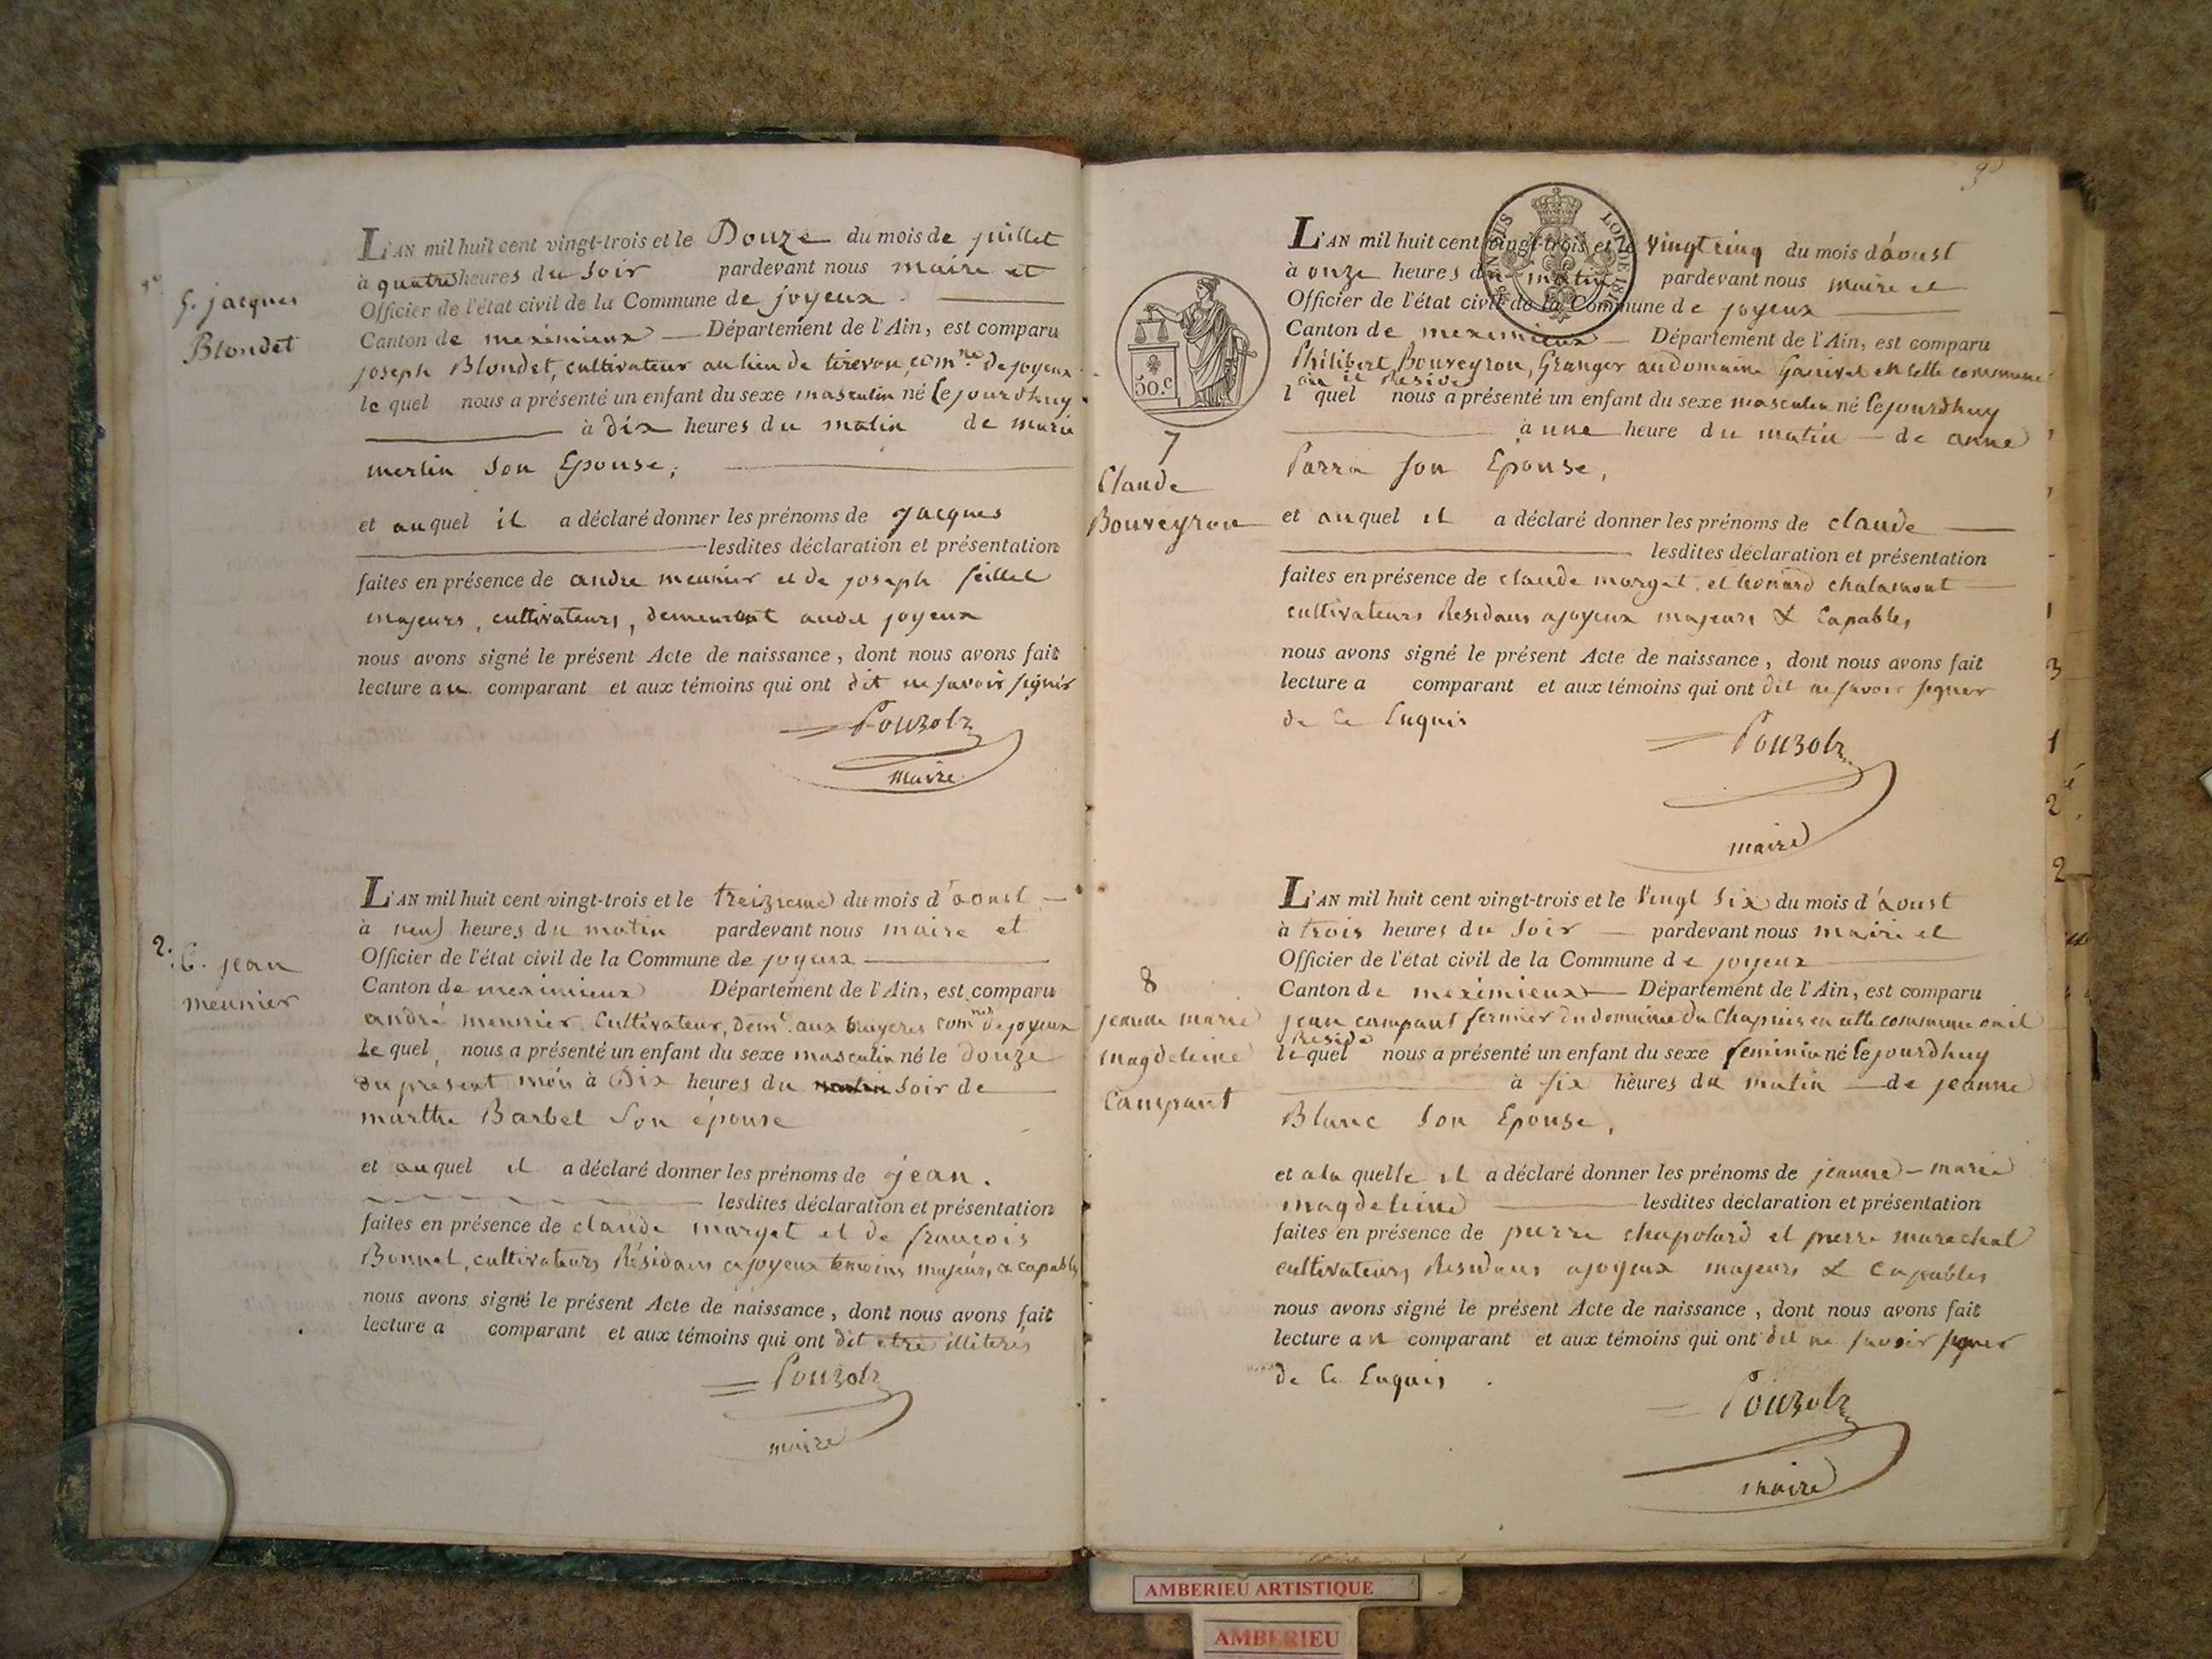 5. jacques
Blondet
L'AN mil huit cent vingt-trois et le Douze du mois de juillet
à quatre heures du soir pardevant nous maire et
Officier de l'état civil de la Commune de joyeux
Canton de meximieux Département de l'Ain, est comparu
joseph Blondet, cultivateur au lieu de tirevon, com.ne de joyeux
le quel nous a présenté un enfant du sexe masculin né Cejourdhuy
à dix heures du matin de marie
merlin son Epouse,
et au quel il a déclaré donner les prénoms de jacques
lesdites déclaration et présentation
faites en présence de andre meunier et de joseph feillet
majeurs, cultivateurs, demeurant audit joyeux
nous avons signé le présent Acte de naissance, dont nous avons fait
lecture au comparant et aux témoins qui ont dit ne savoir signer
Pouzolz
maire
2.
6. jean
meunier
L'AN mil huit cent vingt-trois et le treizieme du mois d'aoust
à neuf heures du matin pardevant nous maire et
Officier de l'état civil de la Commune de joyeux
Canton de meximieux Département de l'Ain, est comparu
andré meunier Cultivateur, dem.t aux bruyeres com.ne de joyeux
Le quel nous a présenté un enfant du sexe masculin né le douze
du présent mois à Dix heures du matin soir de
marthe Barbet son épouse
et au quel il a déclaré donner les prénoms de jean.
lesdites déclaration et présentation
faites en présence de claude marget et de françois
Bonnet, cultivateurs Résidans a joyeux temoins majeurs & capables
nous avons signé le présent Acte de naissance, dont nous avons fait
lecture a comparant et aux témoins qui ont dit etre illiterés
Pouzolz
maire
50.c
7
Claude
Bouveyron
L'AN mil huit cent vingt-trois et le vingt cinq du mois d'aoust
à onze heures du matin pardevant nous maire et
Officier de l'état civil de la Commune de joyeux
Canton de meximieux Département de l'Ain, est comparu
Philibert Bouveyron, Granger au domaine en cette commune
ou il Reside
l quel nous a présenté un enfant du sexe masculin né Cejourdhuy
à une heure du matin de anne
Parra son Epouse,
et au quel il a déclaré donner les prénoms de claude
lesdites déclaration et présentation
faites en présence de claude marget, et leonard chalamont
cultivateurs Residans a joyeux majeurs & Capables,
nous avons signé le présent Acte de naissance, dont nous avons fait
lecture a comparant et aux témoins qui ont dit ne savoir signer
de ce Enquis
Pouzolz
maire
8
jeanne marie
magdeleine
Campant
L'AN mil huit cent vingt-trois et le Vingt six du mois d'aoust
à trois heures du soir pardevant nous maire et
Officier de l'état civil de la Commune de joyeux
Canton de meximieux Département de l'Ain, est comparu
jean campant fermier du domaine du Chapuis en cette commune ou il
Reside
le quel nous a présenté un enfant du sexe feminin né Cejourdhuy
à six heures du matin de jeanne
Blanc son Epouse,
et a la quelle il a déclaré donner les prénoms de jeanne-marie
magdeleine lesdites déclaration et présentation
faites en présence de pierre chapolard et pierre marechal
cultivateurs Residans a joyeux majeurs & Capables
nous avons signé le présent Acte de naissance, dont nous avons fait
lecture au comparant et aux témoins qui ont dit ne savoir signer
de ce Enquis
Pouzolz
maire
AMBERIEU ARTISTIQUE
AMBERIEU